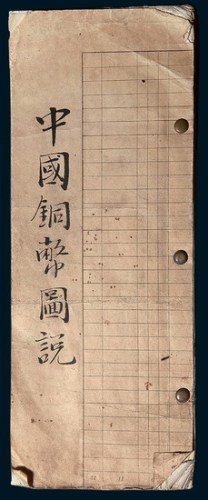 中國銅幣圖説